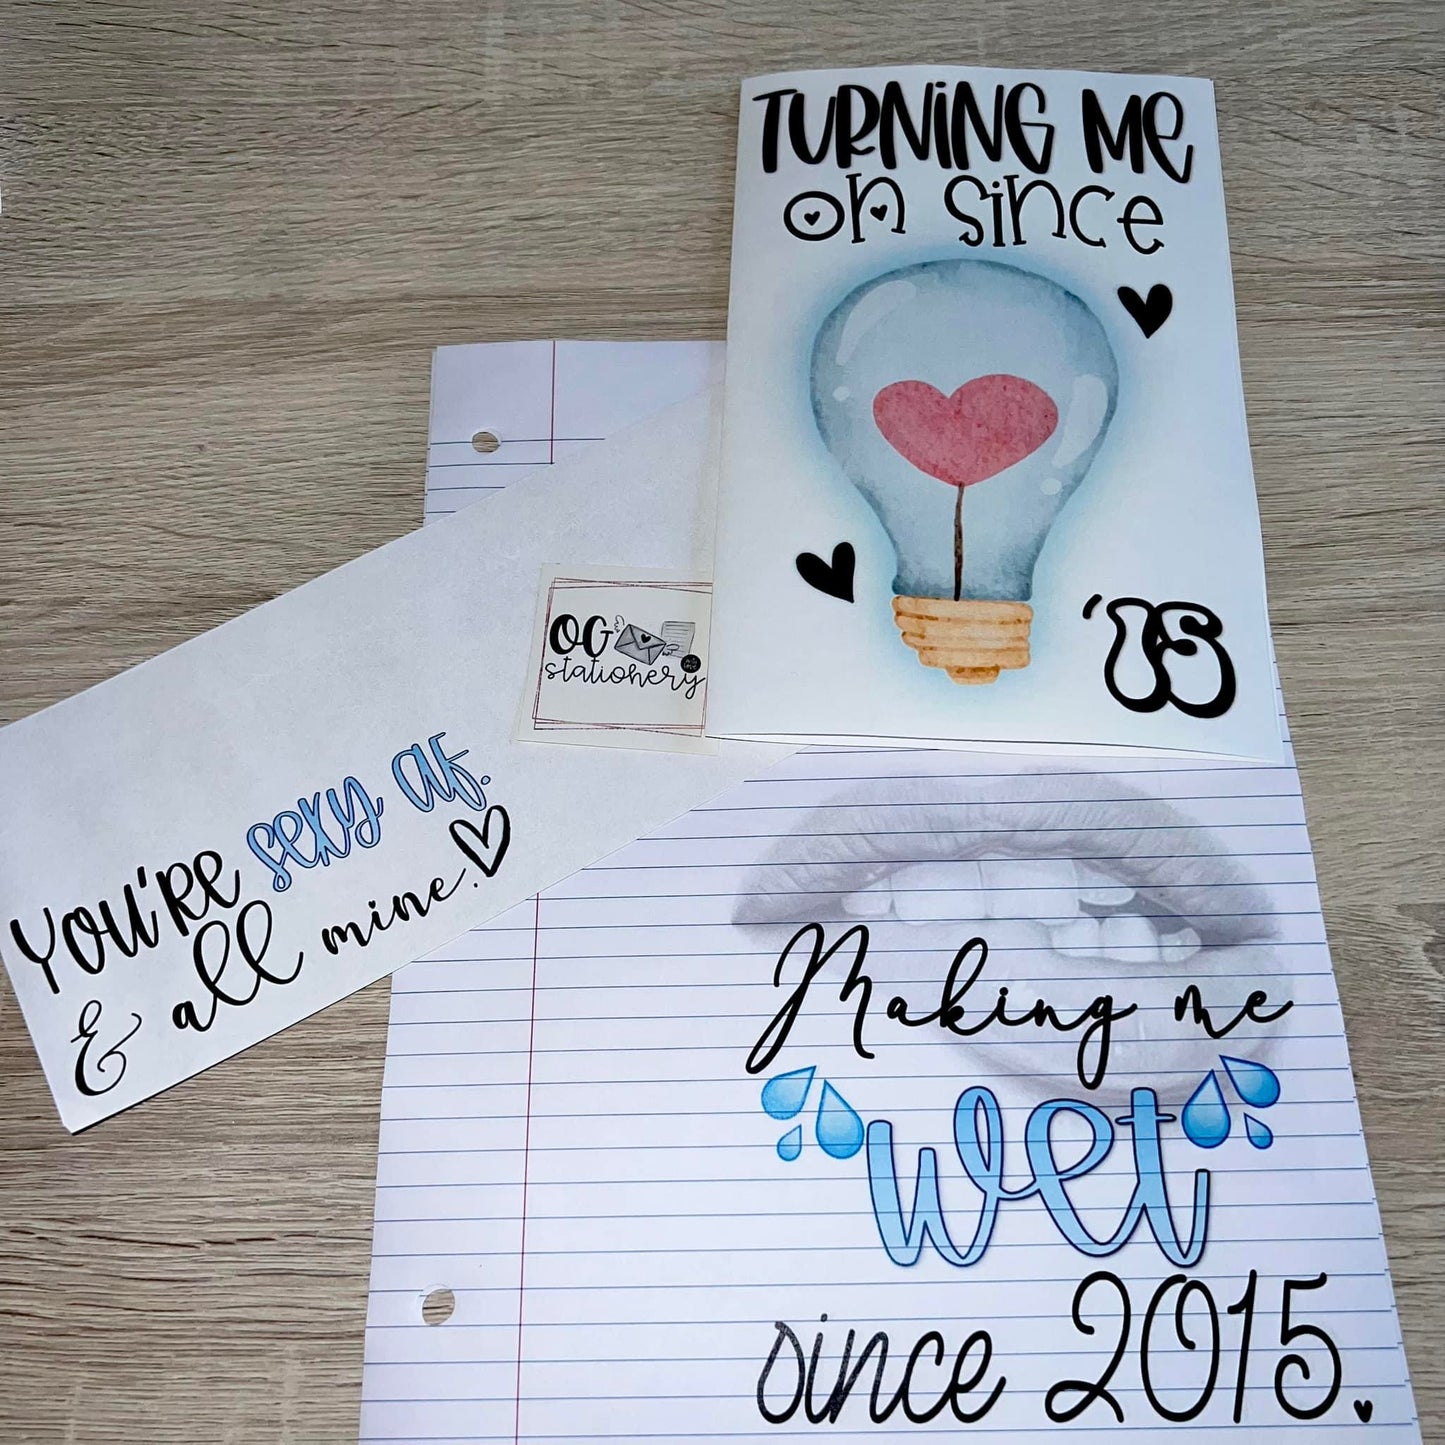 TURNING ME
ON SINCE
'15
OG
stationery
YOU'RE sexy af.
& all mine.
Making me
wet
since 2015.